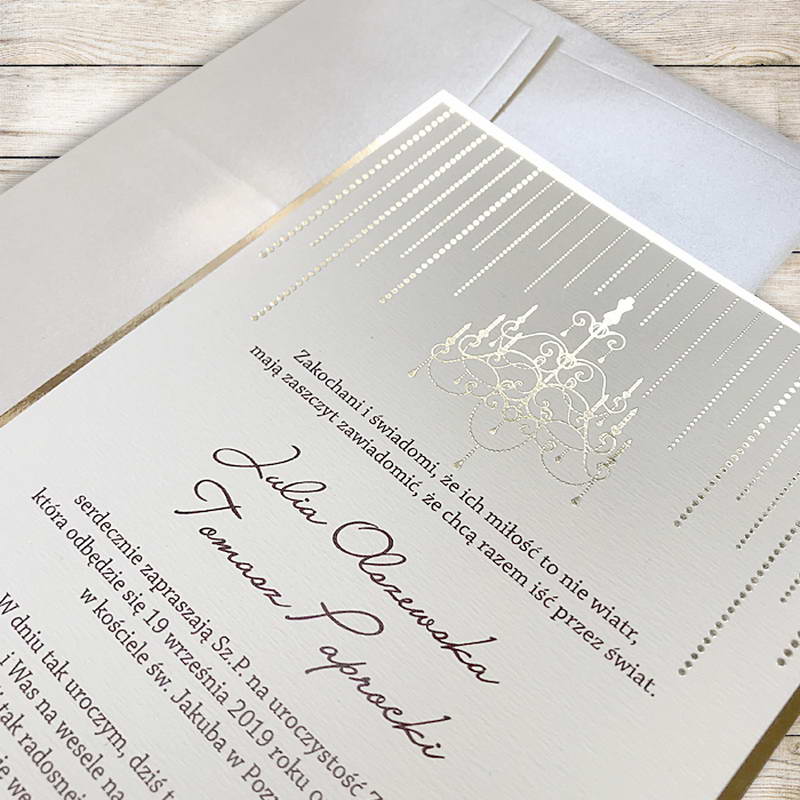 Zakochani i świadomi, że ich miłość to nie wiatr,
mają zaszczyt zawiadomić, że chcą razem iść przez świat.
Julia Olszewska
Tomasz Paprocki
serdecznie zapraszają Sz.P. na uroczystość
która odbędzie się 19 września 2019 roku o
w kościele św. Jakuba w
W dniu tak uroczym, dziś
i Was na wesele
tak radosnej